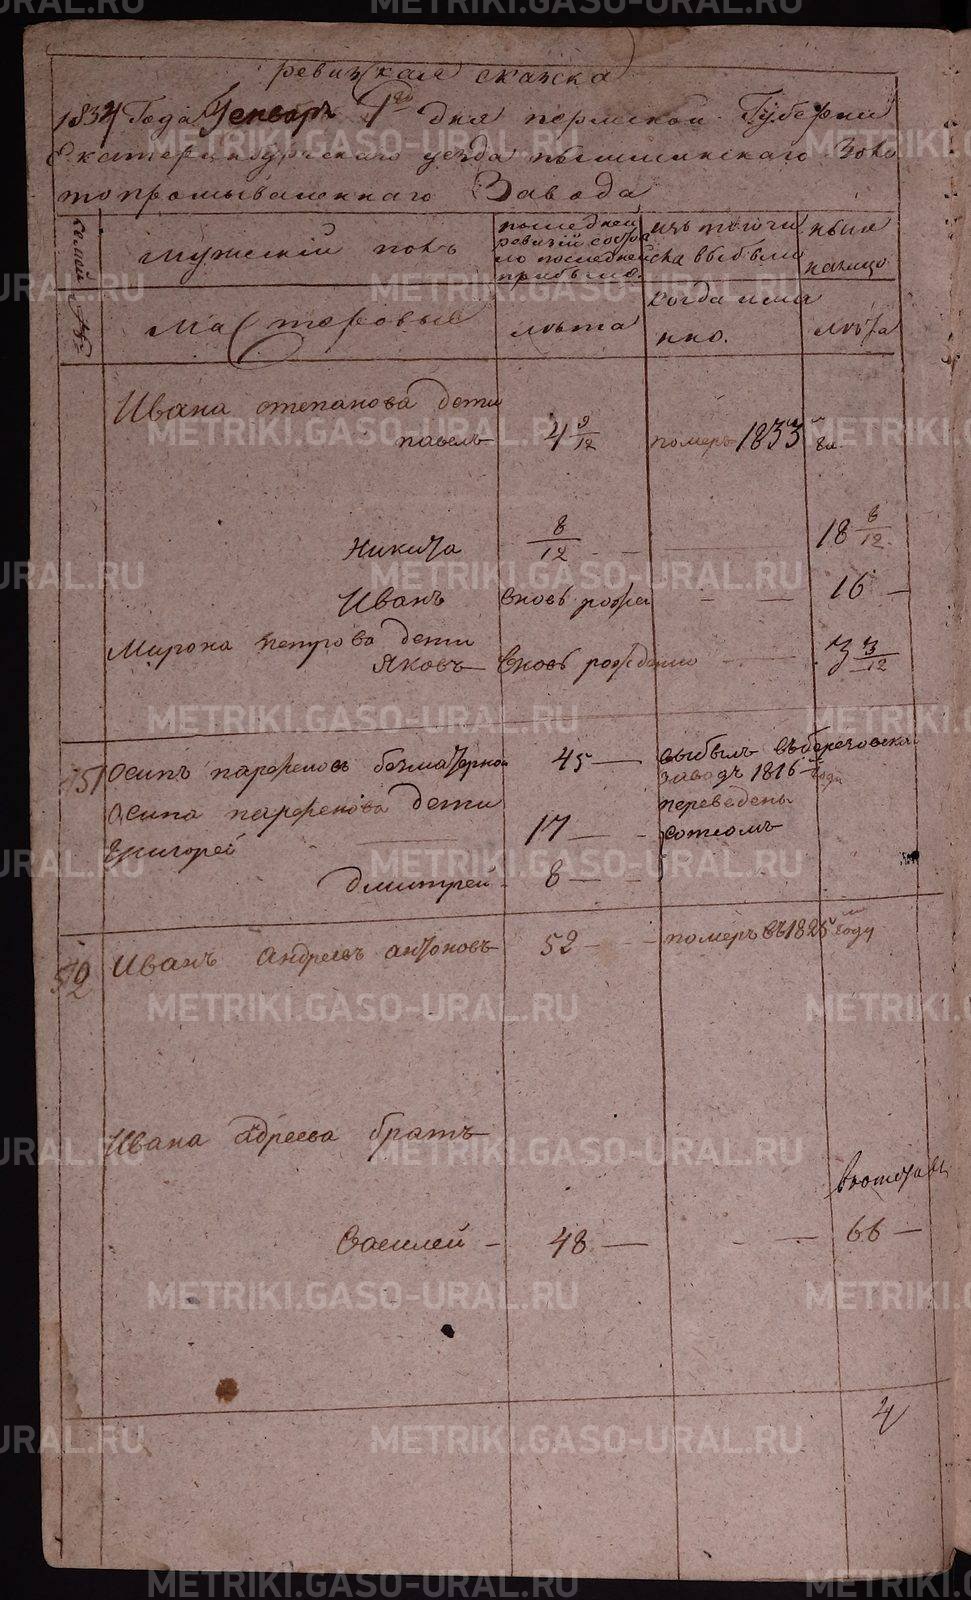 ревизская сказка
1834 Года Генваря 1го дня пермской Губернии
Екатеринбургского уезда пышминскаго Золо
топромываленнаго Завода
семей
мужеский полъ
последней
ревизии состоя
ло
прибыло.
изъ того чи
сла выбыло
ныне
налицо
Мастеровые
лѣта
когда име
нно.
лѣта
Ивана степанова дети
павелъ 4 9/12 померъ 1833 го
Никита 8/12 18 8/12
Иванъ вновь рожде 16
Мирона петрова дети
Яковъ вновь рожденны 3 3/12
51 Осипъ парфеновъ безматерной 45 выбылъ въ березовской
заводъ 1816 годе
Осипа парфенова дети переведенъ
Григорей 17 сотцомъ
Дмитрей 8
52 Иванъ Андреевъ антоновъ 52 померъ въ 1825 м году
Ивана адреева братъ
вотставк
Василей 48 66
4
METRIKI.GASO-URAL.RU